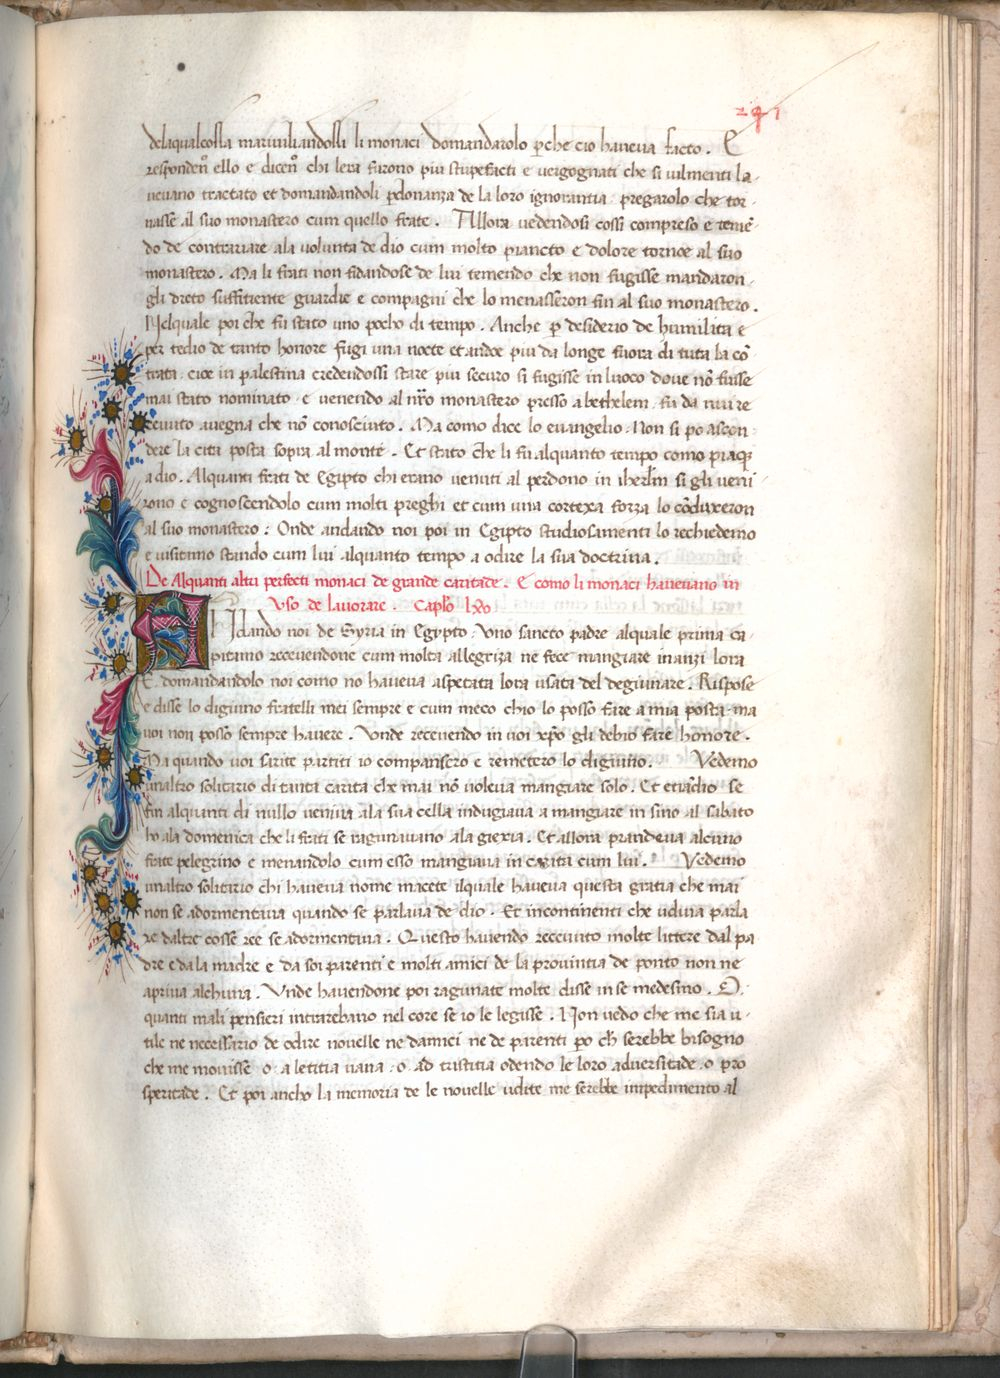 291
delaqualcossa maraviliandossi li monaci domandarolo ꝑche cio haveva facto . E
respondeñ ello e diceñ chi lera furono piu stupefacti e vergognati che si vilmenti la-
vevano tractato et domandandoli ꝑdonanza de la loro ignorantia pregarolo che tor-
nasse al suo monastero cum quello frate . Allora vedendosi cossi compreso e temē-
do de contrariare ala volunta de dio cum molto piancto e dolore tornoe al suo
monastero . Ma li frati non fidandose de lui temendo che non fugisse mandaron-
gli dreto suffitiente guardie e compagni che lo menasseron fin al suo monastero.
Nelquale poi che fu stato uno pocho di tempo . Anche ꝑ desiderio de humilita e
per tedio de tanto honore fugi una nocte et andoe piu da longe fuora di tuta la cō-
trata cioe in palestina credendossi stare piu securo si fugisse in luoco dove nō fusse
mai stato nominato e venendo al nr̄o monastero presso a bethelem fu da nui re
cevuto avegna che nō conosciuto . Ma como dice lo evangelio . Non si po ascon-
dere la cita posta sopra al monte . Et stato che li fu alquanto tempo como piaq̄
a dio . Alquanti frati de Egipto chi erano venuti al perdono in iherl̄m si gli veni
rono e cognoscendolo cum molti preghi et cum una cortexa forza lo cōduxeron
al suo monastero : Onde andando noi poi in Egipto studiosamenti lo rechiedemo
e visitamo stando cum lui alquanto tempo a odire la sua doctrina .
De Alquanti altri perfecti monaci de grande caritade . E como li monaci havevano in
uso de lavorare . Caplo lxo
Andando noi de Syria in Egypto . Uno sancto padre alquale prima ca-
pitamo recevendone cum molta allegriza ne fece mangiare inanzi lora
E domandandolo noi como no haveva aspetata lora usata del degiunare . Rispose
e disse lo digiuno fratelli mei sempre e cum meco chio lo posso fare a mia posta . ma
voi non posso sempre havere . Unde recevendo in voi xp̄o gli debio fare honore .
Ma quando voi sarite partiti io compansero e remetero lo digiuno . Vedemo
unaltro solitario di tanta carita che mai nō voleva mangiare solo . Et etiādio se
fin alquanti di nullo veniva ala sua cella indugiava a mangiare in sino al sabato
ho ala domenica che li frati se ragunavano ala giexia . Et allora prandeva alcuno
frate pelegrino e menandolo cum esso mangiava in carita cum lui . Vedemo
unaltro solitario chi haveva nome macete ilquale haveva questa gratia che mai
non se adormentava quando se parlava de dio . Et incontinenti che udiva parla
re daltre cosse ree se adormentava . Questo havendo recevuto molte littere dal pa
dre e da la madre e da soi parenti e molti amici de la provintia de ponto non ne
apriva alchuna . Unde havendone poi ragunate molte disse in se medesimo . O .
quanti mali pensieri intrarebano nel core se io le legisse . Non vedo che me sia u-
tile ne necessario de odire novelle ne damici ne de parenti po ch̄ serebbe bisogno
che me movisse o a letitia vana . o ad tristitia odendo le loro adversitade o pro
speritade . Et poi ancho la memoria de le novelle udite me serebbe impedimento al